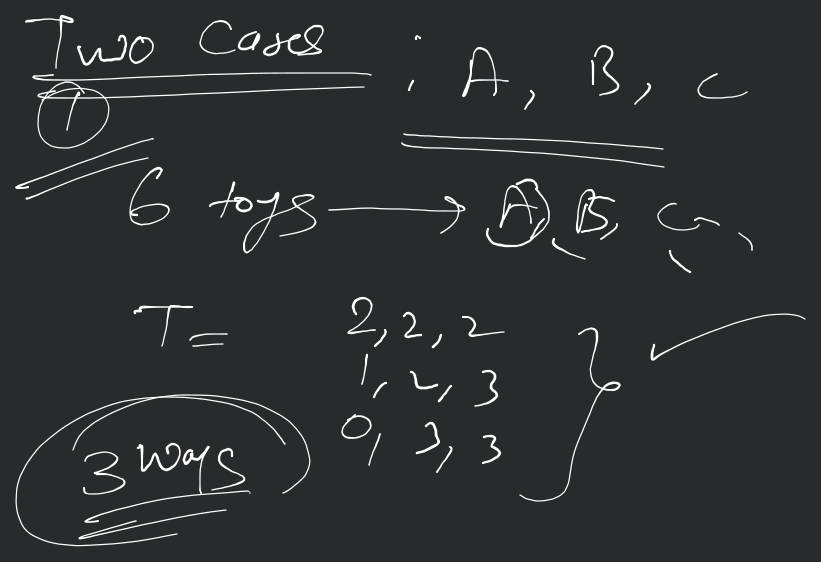 Two Cases : A, B, C
1
6 toys → A, B, C,
T = 2, 2, 2
1, 2, 3
0, 3, 3
3 ways